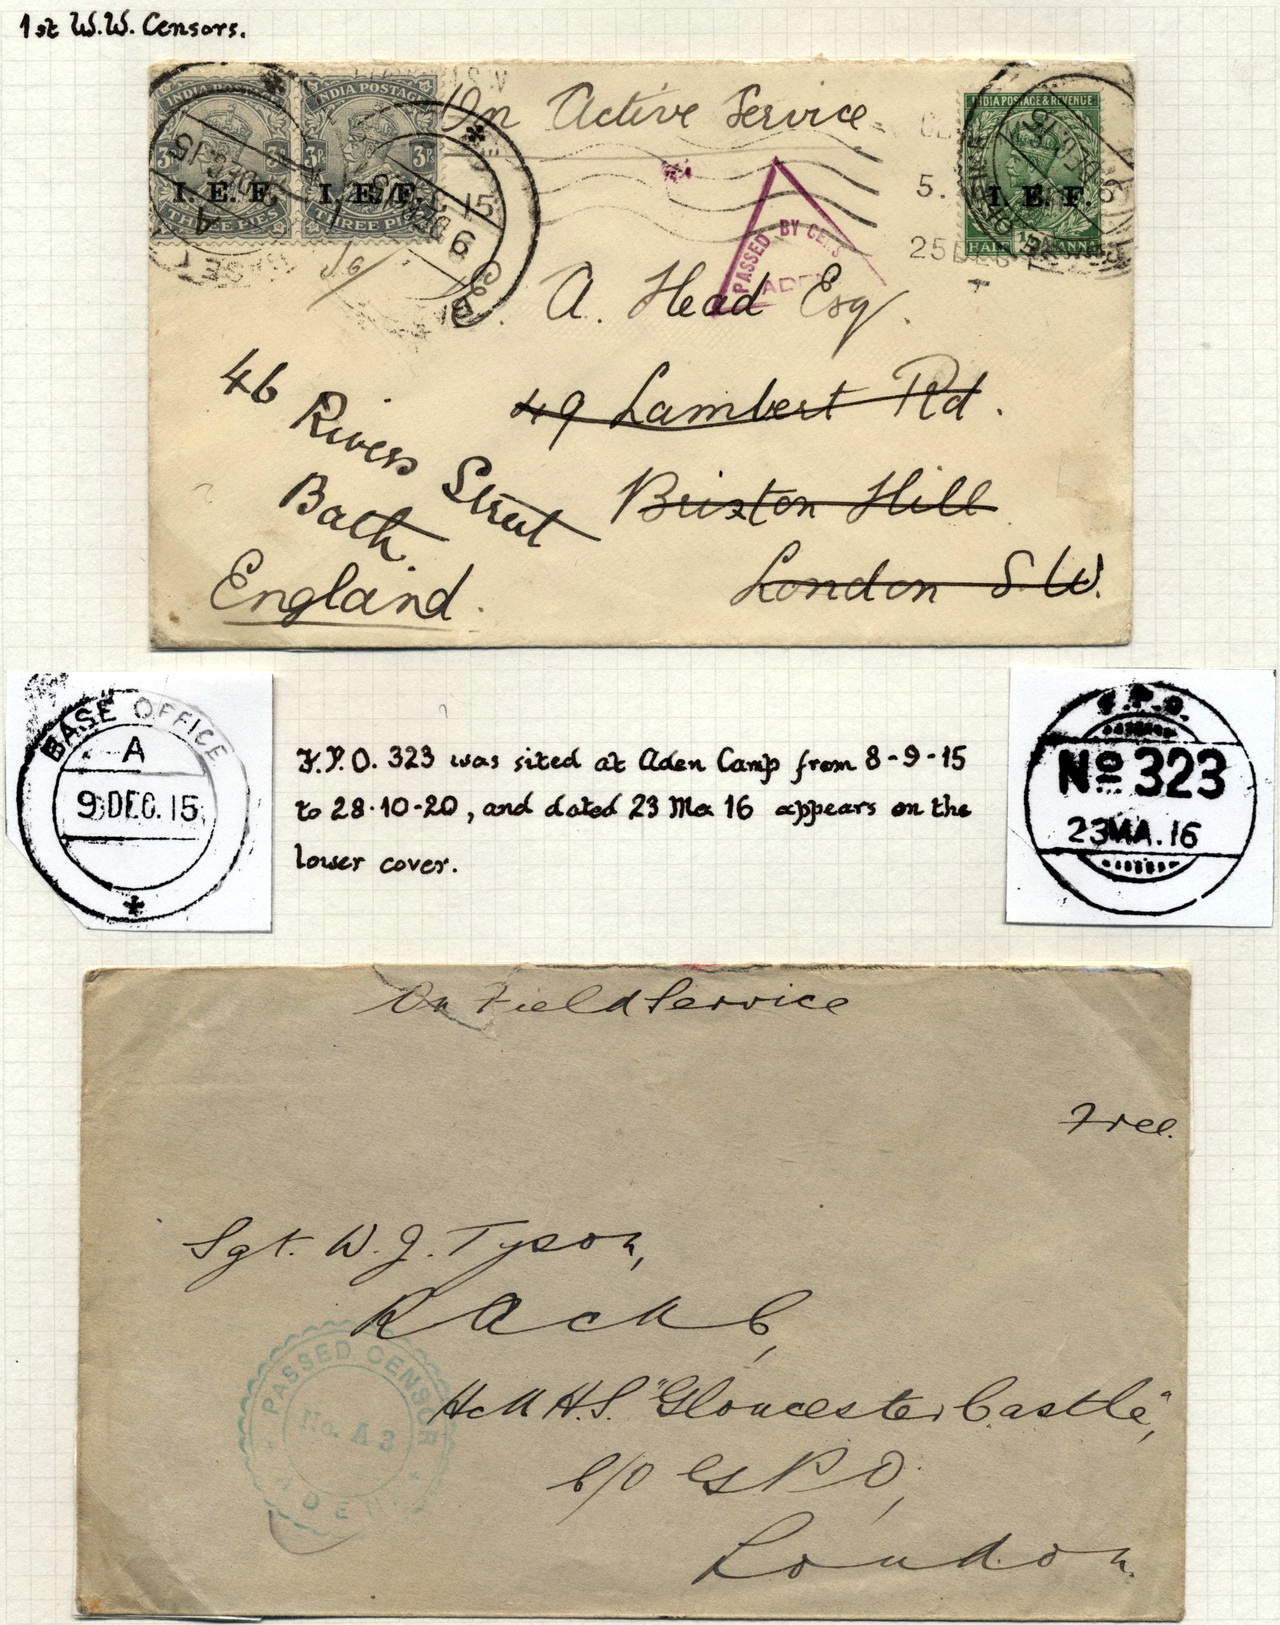 1st W.W. Censors.
On Active Service
INDIA POSTAGE
3Ps
I. E. F.
THREE PIES
INDIA POSTAGE
3Ps
3Ps
I. E. F.
THREE PIES
INDIA POSTAGE & REVENUE
I. E. F.
HALF ANNA
15
5.
25 DEC
PASSED BY CENS
ADEN
A. Head Esq.
49 Lambert Rd.
Brixton Hill
London S.W.
46
Rivers Street
Bath
England.
BASE OFFICE
A
9 DEC. 15
F.P.O. 323 was sited at Aden Camp from 8-9-15
to 28·10-20, and dated 23 Ma 16 appears on the
lower cover.
F.P.O.
No 323
23 MA. 16
On Field Service
Free.
Sgt. W. J. Tyson,
R A M C,
H M H.S. "Gloucester Castle",
C/O G P O,
London.
PASSED CENSOR
No. A 3
ADEN.